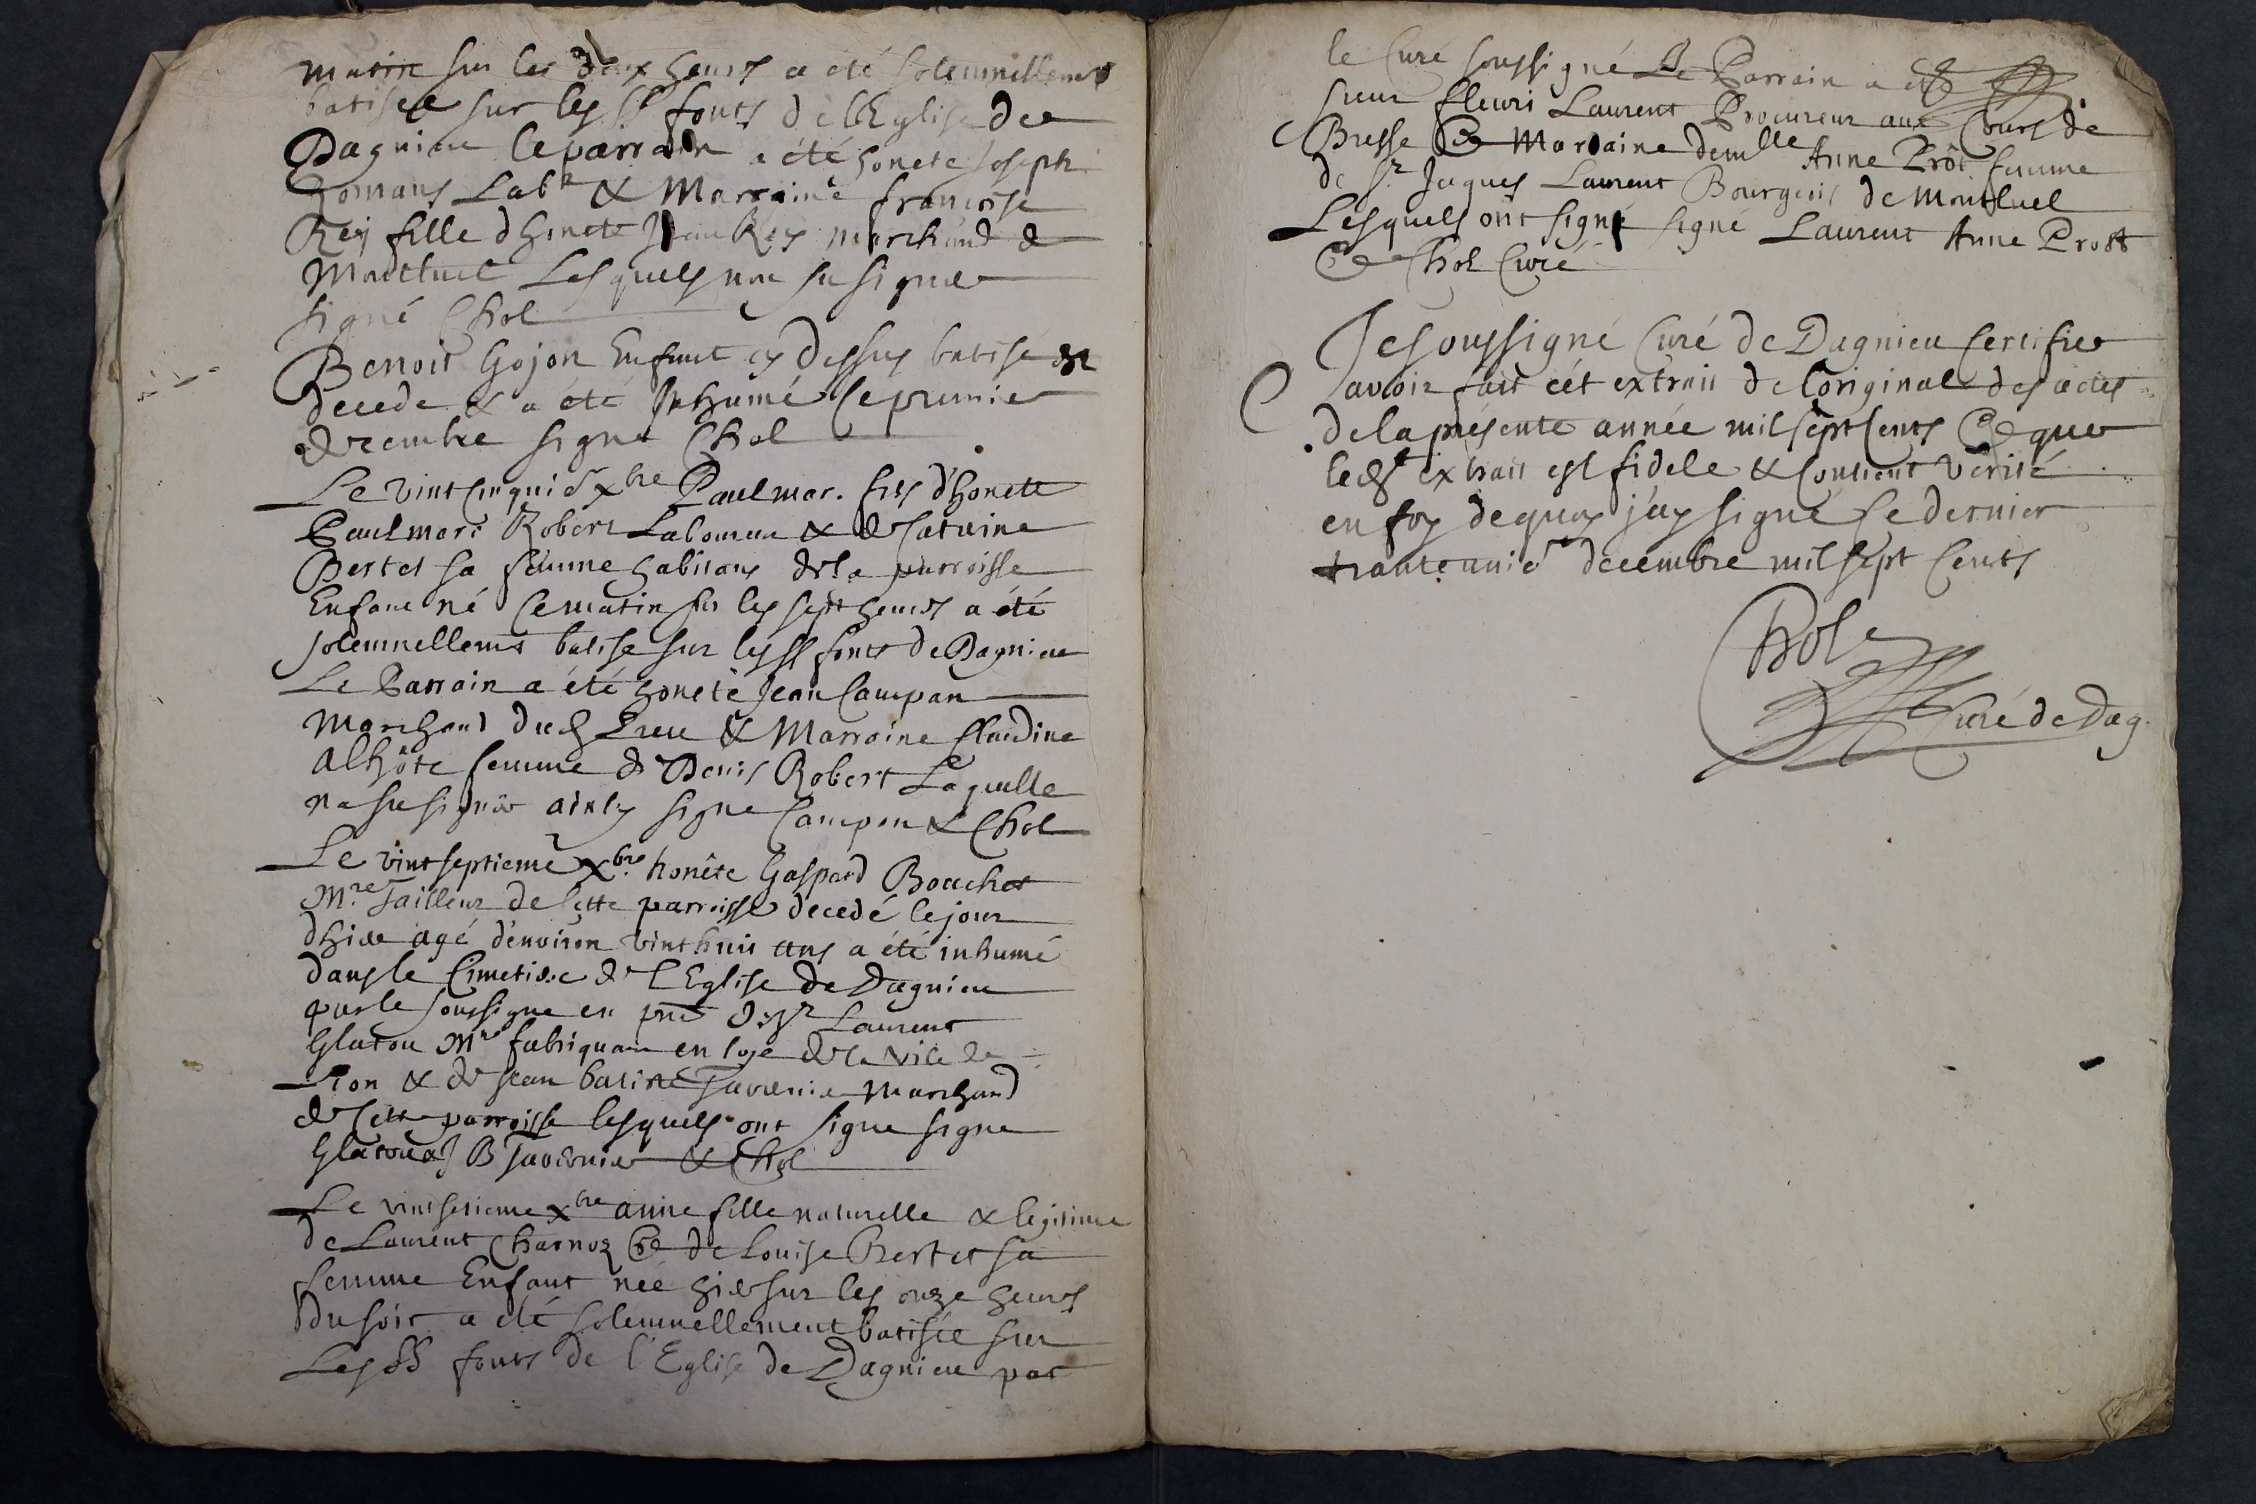 matin sur les deux heures a été solemnellement
batisée sur les SS fonts de l'Eglise de
Dagnieu le parrain a été honete Joseph
homans Lab^r & Marraine francoise
Rey fille dhonete Jean Rey marchand de
Montluel Lesquels non su signer
signé Chol
Benoit Gojon Enfant cy dessus batisé est
decede & a été Inhumé le premier
decembre signé Chol
Le vintcinqui^e x^bre Paulmar. fils d'honete
Paulmarc Robert Laboureur & de Catrine
Bertet sa femme habitans de la parroisse
Enfant né ce matin sur les sept heures a été
solemnellemt batisé sur les SS fonts de Dagnieu
Le Parrain a été honete Jean Campan
Marchand dud Lieu & Marraine Claudine
alhôte femme de Denis Robert Laquelle
na su signer ainsy signé Campan & Chol
Le vintseptieme X^bre honête Gaspard Bouchet
M^re Tailleur de cette parroisse decedé le jour
dhier agé denviron vinthuit ans a été inhumé
dans le Cimetiere de l'Eglise de Dagnieu
par le soussigné en pnce de s^r Laurent
Glatou M^re fabriquant en soye de la vile de
Lion & de Jean batiste Tavernier Marchand
de cette parroisse lesquels ont signe signe
Glatoud J B Tavernier & Chol
Le vintsetieme x^bre anne fille naturelle & legitime
de Laurent Charnoz & de Louise Bertet sa
femme Enfant née hier sur les onze heures
du soir a été solemnellement batisée sur
Les SS fonts de l'Eglise de Dagnieu par
le Curé soussigné Le Parrain a été
sieur fleuri Laurent Procureur aux Cours de
Bresse & Marraine demlle Anne Prôt femme
de s^r Jaques Laurent Bourgeois de Montluel
Lesquels ont signé signé Laurent Anne Prost
& Chol Curé
Je soussigné Curé de Dagnieu certifie
avoir fait cét extrait de l'original des actes
de la présente année mil sept Cents & que
led^t extrait est fidele & Contient verité
en foy dequoy j'ay signé le dernier
tranteunie^e decembre mil sept Cents
Chol
Curé de Dag.